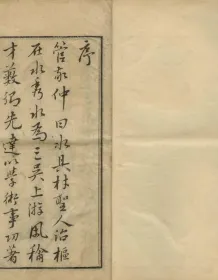 序
管敬仲曰水具材聖人治樞
在水秀水為三吳上游風稱
才藪䄂先達以學術事功著